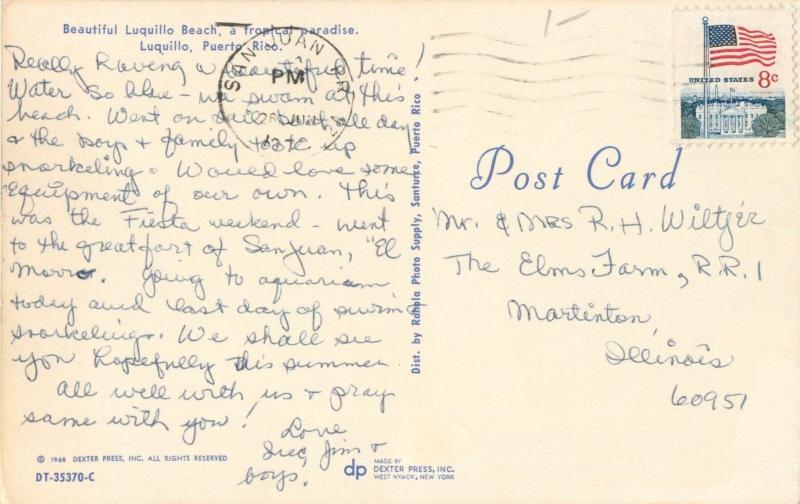 Beautiful Luquillo Beach, a tropical paradise.
Luquillo, Puerto Rico.
Really having a wonderful time!
Water so blue - we swam at this
beach. Went on sail boat all day
& the boys & family took up
snorkeling. Would love some
equipment of our own. This
was the Fiesta weekend - went
to the great fort of San Juan, "El
Morro. Going to aquarium
today and last day of swim &
snorkeling. We shall see
you hopefully this summer.
All well with us & pray
same with you!
Love
Jim &
boys.
© 1968 DEXTER PRESS, INC. ALL RIGHTS RESERVED
DT-35370-C
dp MADE BY
DEXTER PRESS, INC.
WEST NYACK, NEW YORK
Dist. by Rahola Photo Supply, Santurke, Puerto Rico
SAN JUAN P.R.
PM
UNITED STATES 8c
Post Card
Mr. & Mrs R. H. Wiltger
The Elms Farm, R.R. 1
Martinton,
Illinois
60951